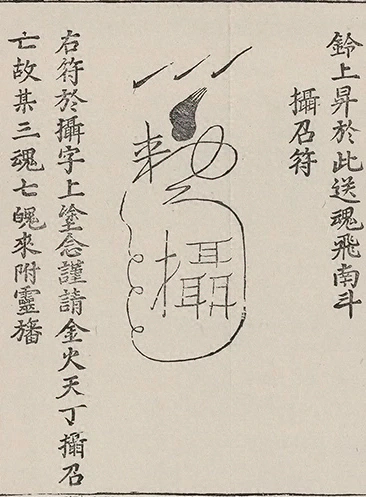 鈴上昇於此送魂飛南斗
攝召符
攝
右符於攝字上塗念謹請金火天丁攝召
亡故某三魂七魄來附靈旛